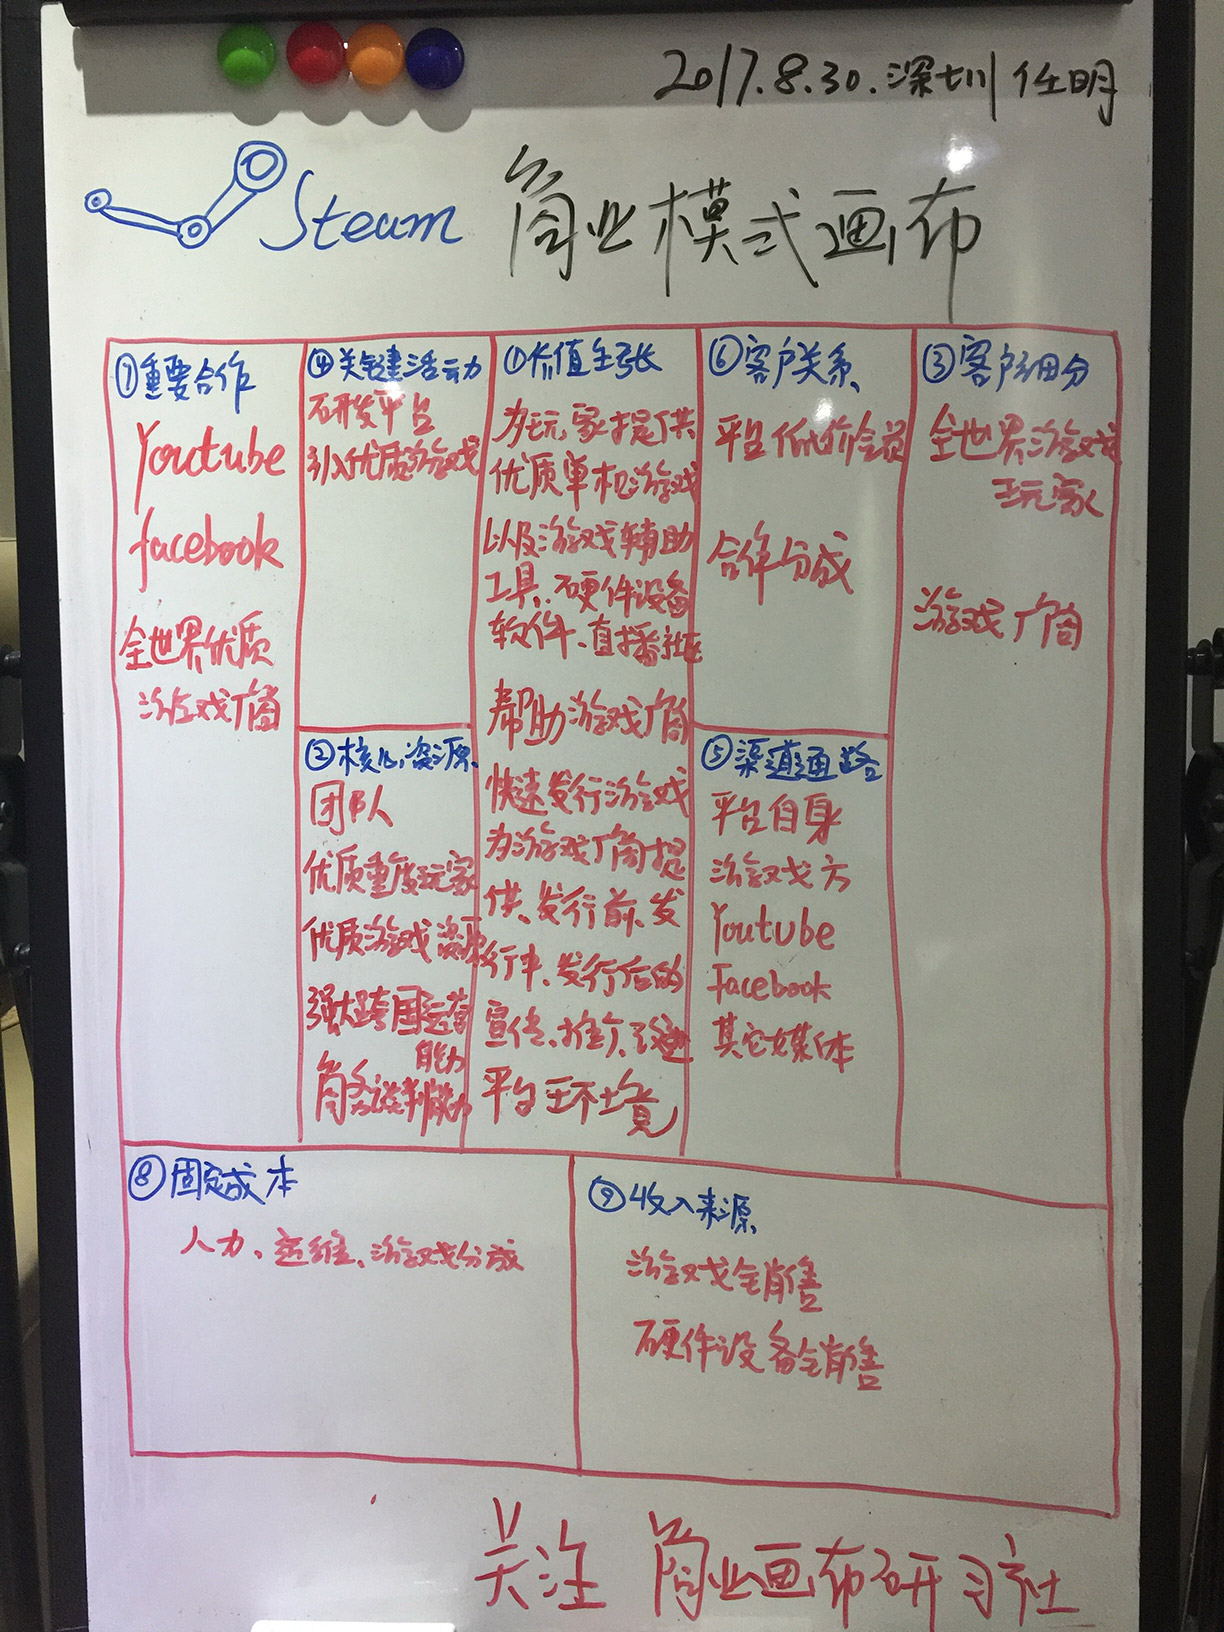 2017.8.30.深圳 任明
Steam 商业模式画布
⑦重要合作
Youtube
facebook
全世界优质
游戏厂商
④关键活动力
研发平台
引入优质游戏
②核心资源
团队
优质重度玩家
优质游戏资源
强大跨国运营
能力
商务谈判能力
①价值主张
为玩家提供
优质单机游戏
以及游戏辅助
工具、硬件设备
软件、直播社区
帮助游戏厂商
快速发行游戏
为游戏厂商提
供、发行前、发
行中、发行后的
宣传、推广、改进
平台环境
⑥客户关系
平台低价会员
合作分成
⑤渠道通路
平台自身
游戏方
Youtube
Facebook
其它媒体
③客户细分
全世界游戏
玩家
游戏厂商
⑧固定成本
人力、运维、游戏分成
⑨收入来源
游戏销售
硬件设备销售
关注 商业画布研习社